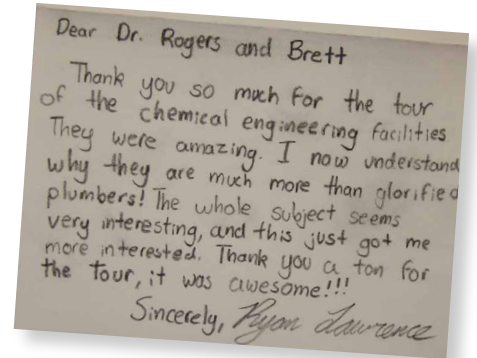 Dear Dr. Rogers and Brett
Thank you so much for the tour
of the chemical engineering facilities
They were amazing. I now understand
why they are much more than glorified
plumbers! The whole subject seems
very interesting, and this just got me
more interested. Thank you a ton for
the tour, it was awesome!!!
Sincerely, Ryan Lawrence